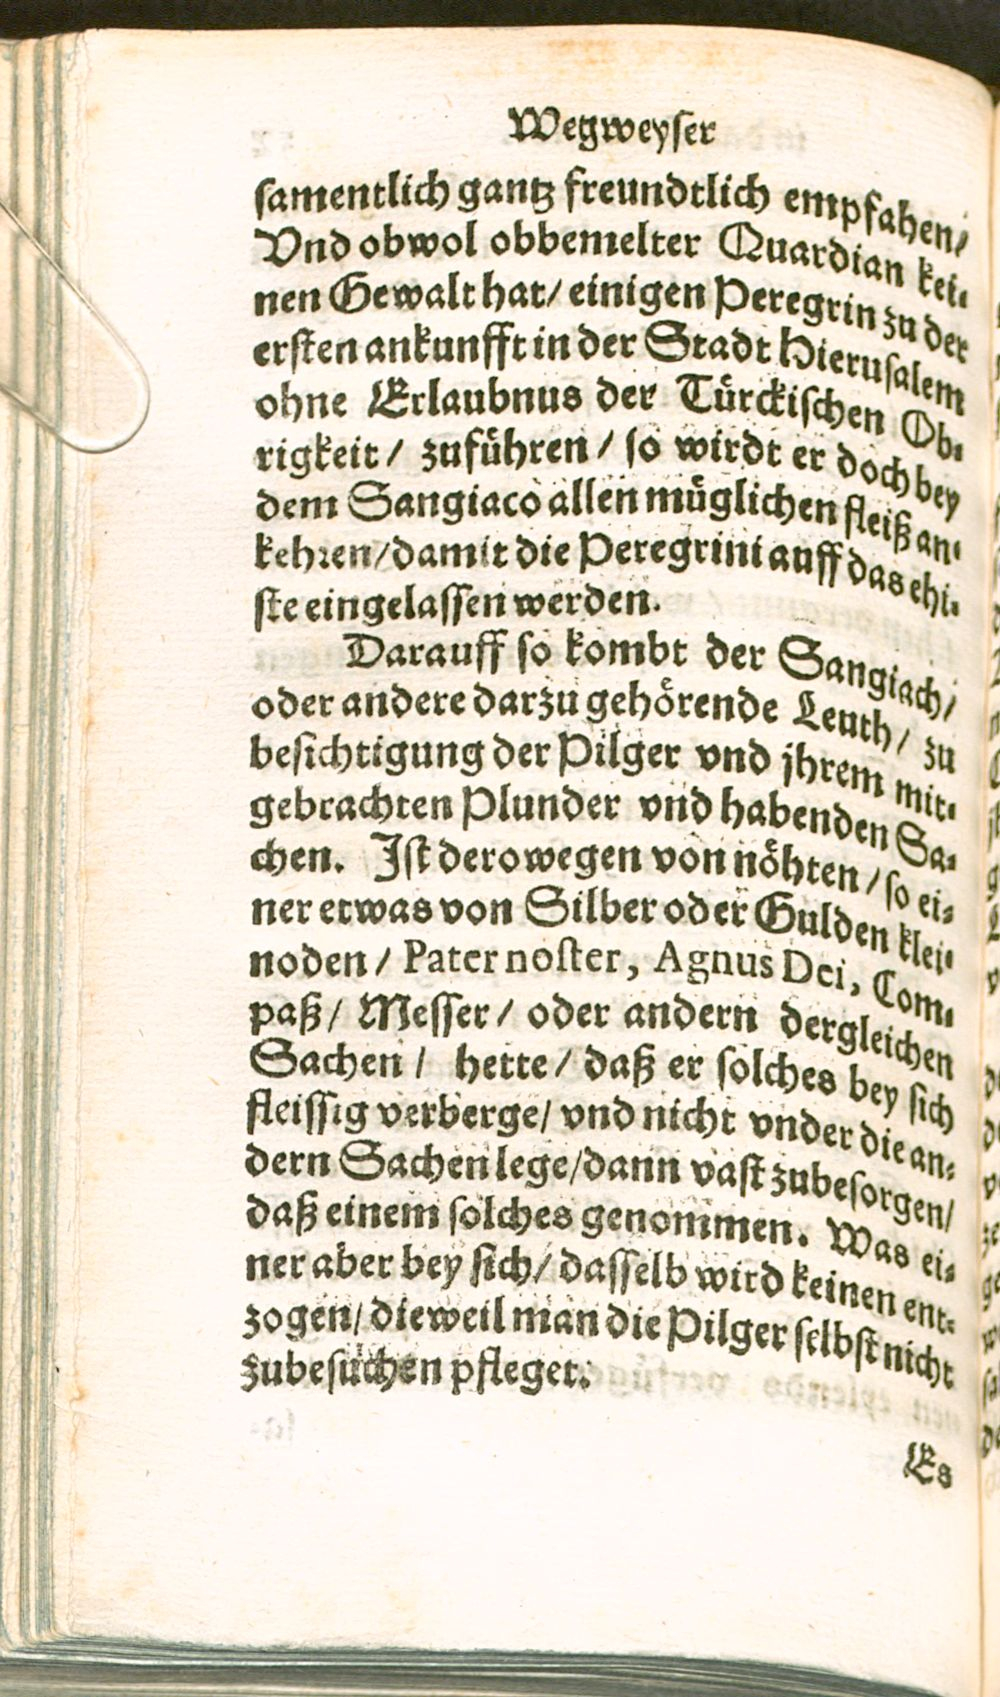 Wegweyser
samentlich gantz freundtlich empfahen/
Vnd obwol obbemelter Quardian kei-
nen Gewalt hat/ einigen Peregrin zu der
ersten ankunfft in der Stadt Hierusalem
ohne Erlaubnus der Türckischen Ob-
rigkeit/ zuführen/ so wirdt er doch bey
dem Sangiaco allen müglichen fleiß an-
kehren/ damit die Peregrini auff das ehi-
ste eingelassen werden.
Darauff so kombt der Sangiach/
oder andere darzu gehörende Leuth/ zu
besichtigung der Pilger vnd jhrem mit-
gebrachten Plunder vnd habenden Sa-
chen. Ist derowegen von nöhten/ so ei-
ner etwas von Silber oder Gulden klei-
noden/ Pater noster, Agnus Dei, Com-
paß/ Messer/ oder andern dergleichen
Sachen/ hette/ daß er solches bey sich
fleissig verberge/ vnd nicht vnder die an-
dern Sachen lege/ dann vast zubesorgen/
daß einem solches genommen. Was ei-
ner aber bey sich/ dasselb wird keinen ent-
zogen/ dieweil man die Pilger selbst nicht
zubesuchen pfleget.
Es